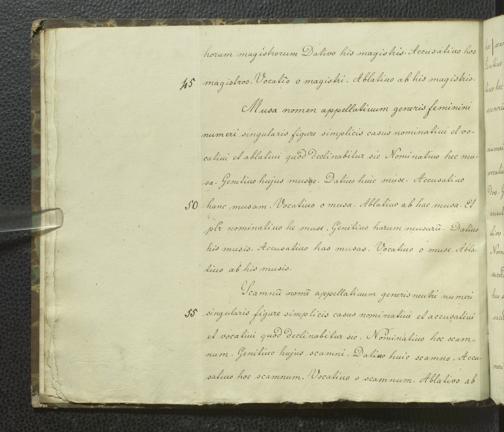 horum magistrorum Dativo his magistris. Accusativo hos
45 magistros. Vocatio o magistri. Ablativo ab his magistris.
Musa nomen appellativum generis feminini
numeri singularis figure simplicis casus nominativi et vo-
cativi et ablativi quod declinabitur sic Nominativo hec mu-
sa. Genitivo hujus muse. Dativo huic muse. Accusativo
50 hanc musam. Vocativo o musa. Ablativo ab hac musa. Et
plr nominativo he muse. Genitivo harum musarū. Dativo
his musis. Accusativo has musas. Vocativo o muse Abla-
tivo ab his musis.
Scamnū nomē appellativum generis neutri numeri
55 singularis figure simplicis casus nominativi et accusativi
et vocativi quod declinabitur sic. Nominativo hoc scam-
num. Genitivo hujus scamni. Dativo huic scamno. Accu-
sativo hoc scamnum. Vocativo o scamnum. Ablativo ab